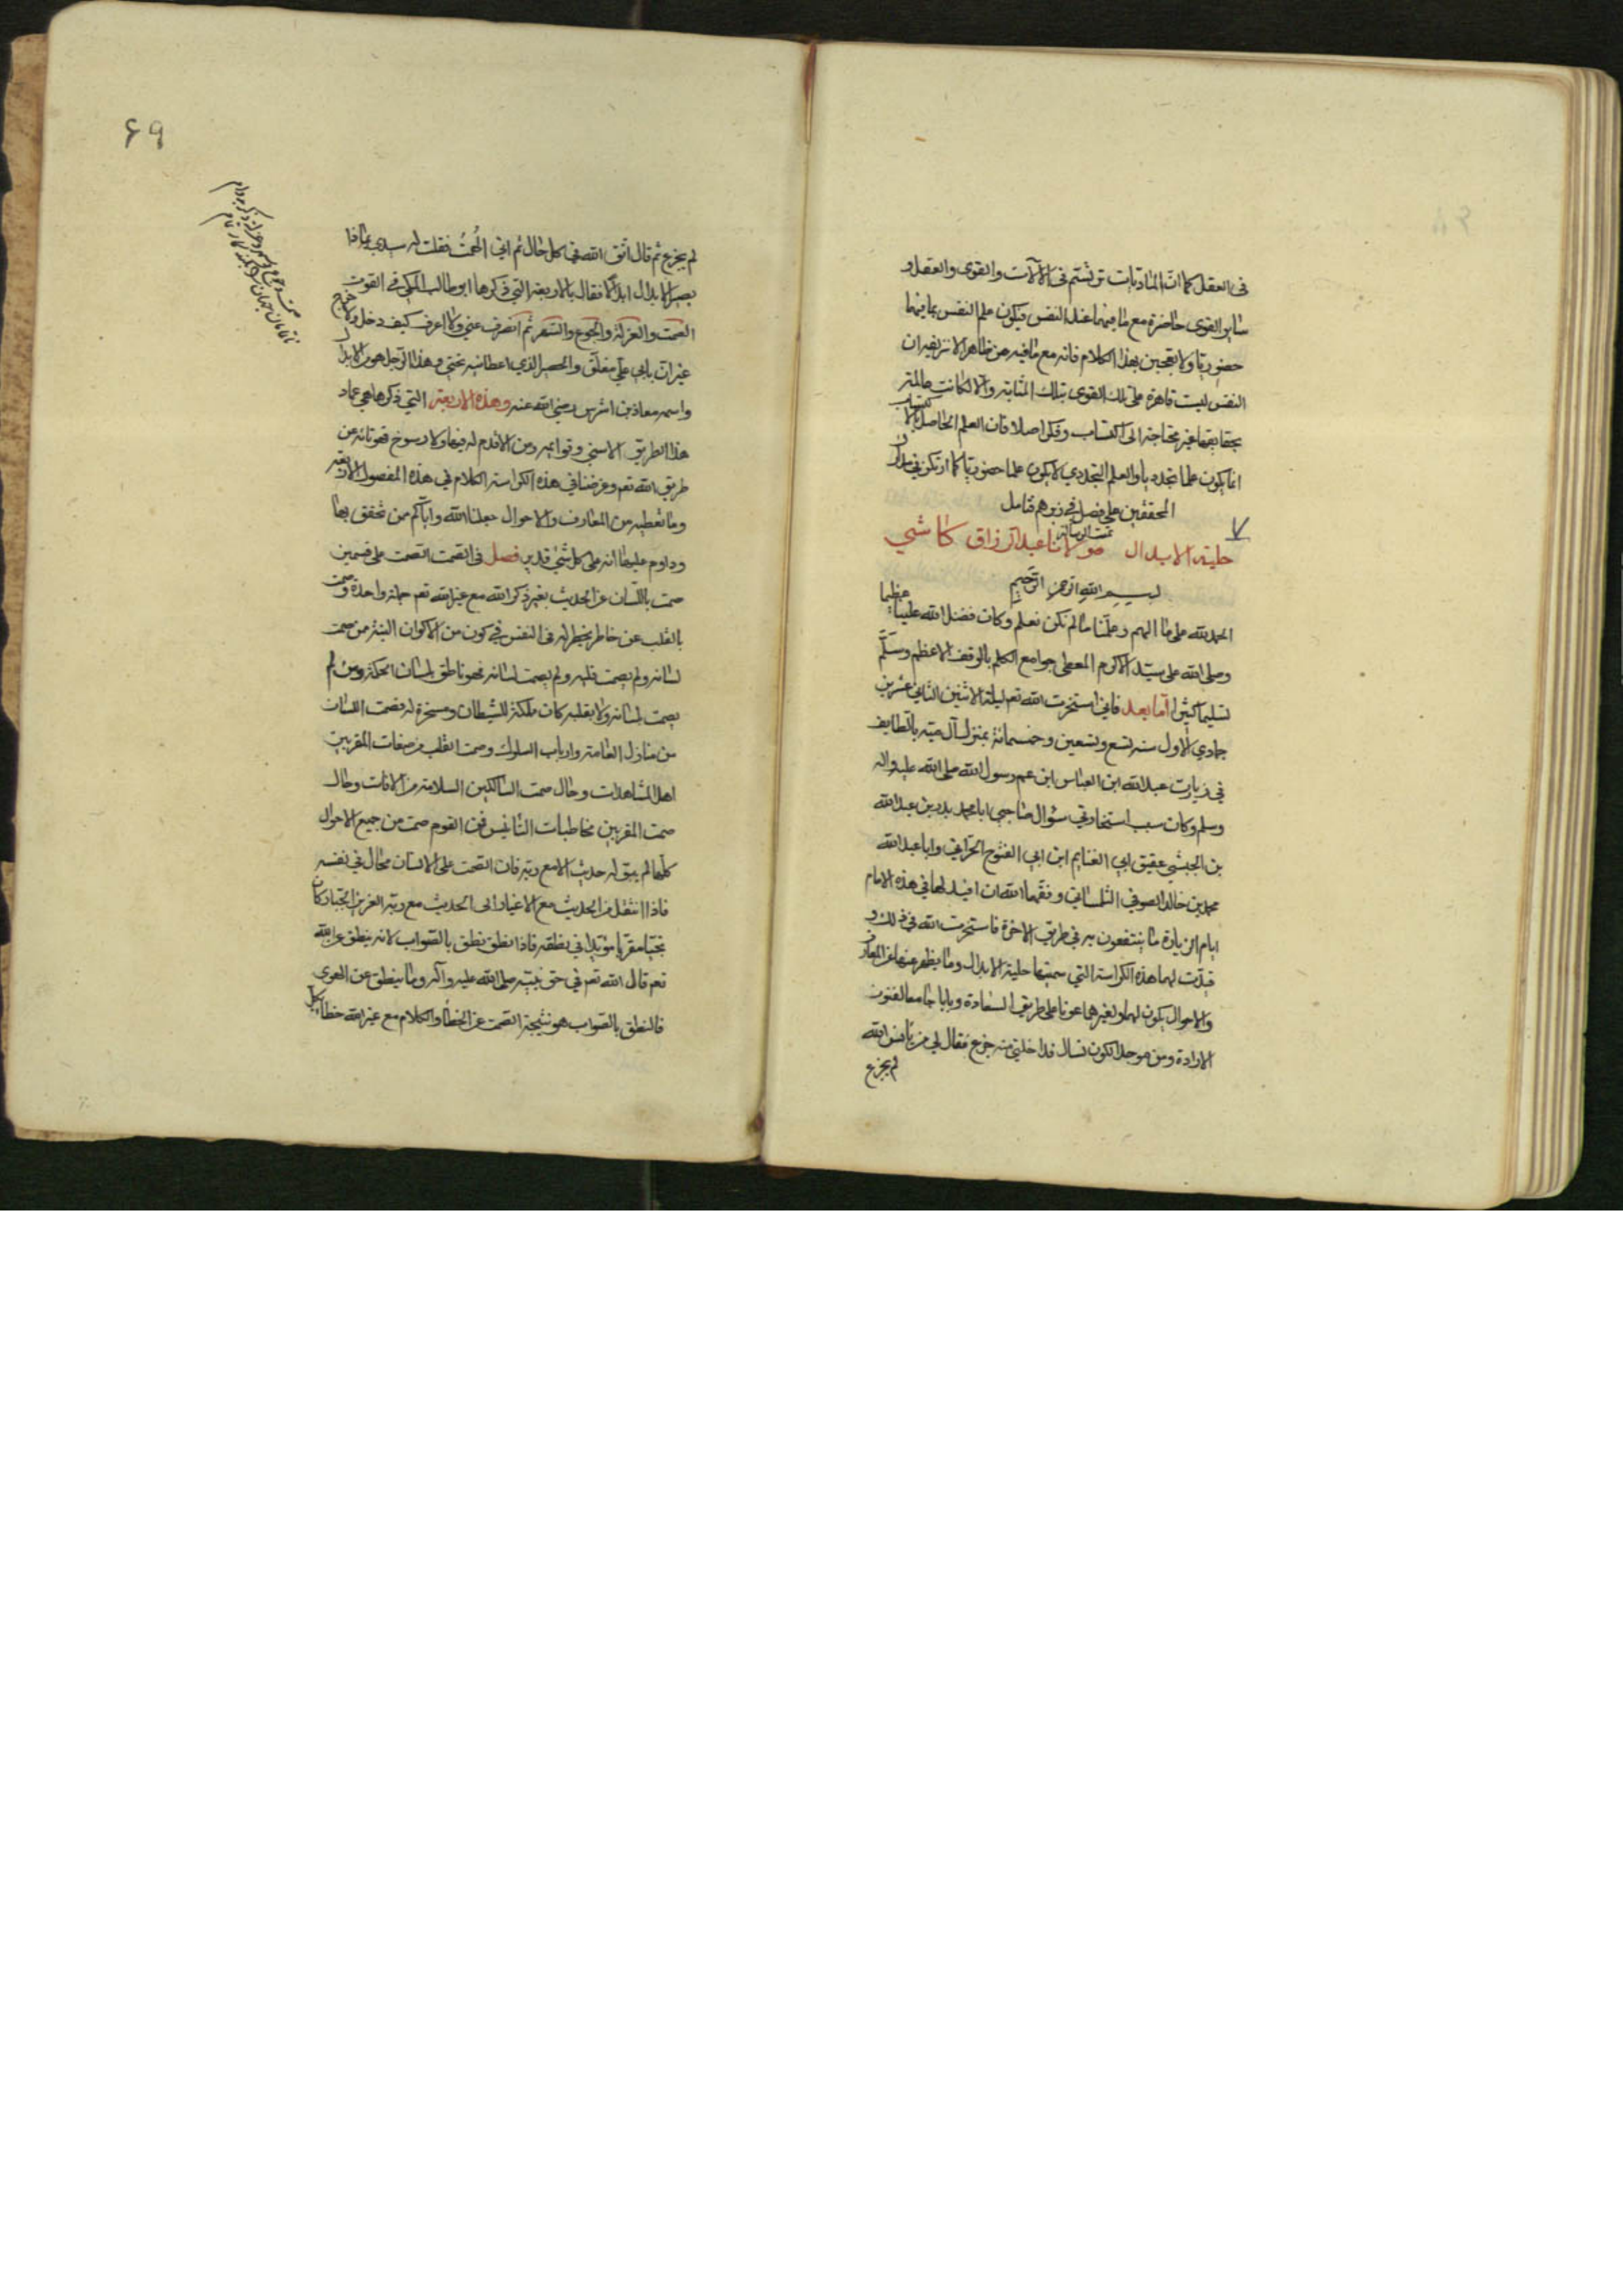 فی العقل کما ان المادیات ترتسم فی الآلات والقوی والعقل و
سایر القوی حاضرة مع ما فیهما عند النفس فیکون علم النفس بما فیهما
حضوریا ولا یعجبن بهذا الکلام فانه مع ما فیه من ظاهر الا تریفیران
النفس لیست قاهرة علی تلک القوی بتلک المثابة والا لکانت عالمة
بحقایقها غیر محتاجة الی اکتساب وفکر اصلا فان العلم الحاصل بالاکتساب
انما یکون علما تجددیا والعلم التجددی لا یکون علما حضوریا کما ارتکز فی مدارک
المحققین علی فضل فی زبرهم فتامل
تمت الرسالة
٧
حلیة الابدال مولانا عبد الرزاق کاشی
بسم الله الرحمن الرحیم
الحمد لله علی ما الهم وعلمنا ما لم نکن نعلم وکان فضل الله علینا عظیما
وصلی الله علی سید الاکرم المعطی جوامع الکلم بالوقف الاعظم وسلم
تسلیما کثیرا اما بعد فانی استخرت الله تعم لیلة الاثنین الثانی عشر من
جمادی الاول سنه تسع وتسعین وخمسمائة بمنزل آل میه بالطایف
فی زیارت عبد الله ابن العباس ابن عم رسول الله صلی الله علیه واله
وسلم وکان سبب استخارتی سؤال صاحبی ابا محمد بدر بن عبد الله
بن الحبشی عقیق ابی الغنایم ابن ابی الفتوح الحرانی وابا عبد الله
محمد بن خالد الصوفی التلمسانی وفقهما الله ان افید لهما فی هذه الایام
ایام الزیارة ما ینتفعون به فی طریق الاخرة فاستخرت الله فی ذلک و
قیدت لهما هذه الکراسة التی سمیتها حلیة الابدال وما یظهر عنها من المعارف
والاحوال یکون لهما ولغیرهما عونا علی طریق السعادة وبابا جامعا لفنون
الارادة ومن موجد الکون نسال فداخلنی منه جزع فقال لی من یانس الله
لم یجزع
۶۹
لم یجزع ثم قال اتق الله فی کل حال ثم انی الهمت فقلت له سیدی بماذا
یصیر الابدال ابدالا فقال بالاربعة التی ذکرها ابو طالب المکی فی القوت
الصمت والعزلة والجوع والسهر ثم انصرف عنی ولا اعرف کیف دخل ولا خرج
غیر ان بابی علی مغلق والحصیر الذی اعطانیه تحتی وهذا الرجل هو من الابدال
واسمه معاذ بن اشرس رضی الله عنه وهذه الاربعة التی ذکرها هی عماد
هذا الطریق الاسنی وقوائمه ومن لا قدم له فیها ولا رسوخ فهو تائه عن
طریق الله تعم وغرضنا فی هذه الکراسة الکلام فی هذه الفصول الاربعة
وما تعطیه من المعارف والاحوال جعلنا الله وایاکم من تحقق بها
وداوم علیها انه علی کل شیء قدیر فصل فی الصمت الصمت علی قسمین
صمت باللسان عن الحدیث بغیر ذکر الله مع غیر الله تعم جملة واحدة وصمت
بالقلب عن خاطر یخطر له فی النفس فی کون من الاکوان البتة من صمت
لسانه ولم یصمت قلبه ولم یصمت لسانه فهو ناطق بلسان الحکمة ومن لم
یصمت بلسانه ولا بقلبه کان مملکة للشیطان ومسخرة له فصمت اللسان
من منازل العامة وارباب السلوک وصمت القلب من صفات المقربین
اهل المشاهدات وحال صمت السالکین السلامة من الافات وحال
صمت المقربین مخاطبات التانیس فمن القوم صمت من جمیع الاحوال
کلها لم یبق له حدیث الا مع ربه فان الصمت علی الانسان محال فی نفسه
فاذا انتقل من الحدیث مع الاغیار الی الحدیث مع ربه العزیز الجبار کان
نجیا مقربا مؤیدا فی نطقه فاذا نطق نطق بالصواب لانه ینطق عن الله
تعم قال الله تعم فی حق نبیه صلی الله علیه وآله وما ینطق عن الهوی
فالنطق بالصواب هو نتیجة الصمت عن الخطأ والکلام مع غیر الله خطاء بکل
صمت وجوع وسهر وعزلت وذکر بدوام
ناتمامان جهان را کند کار تمام